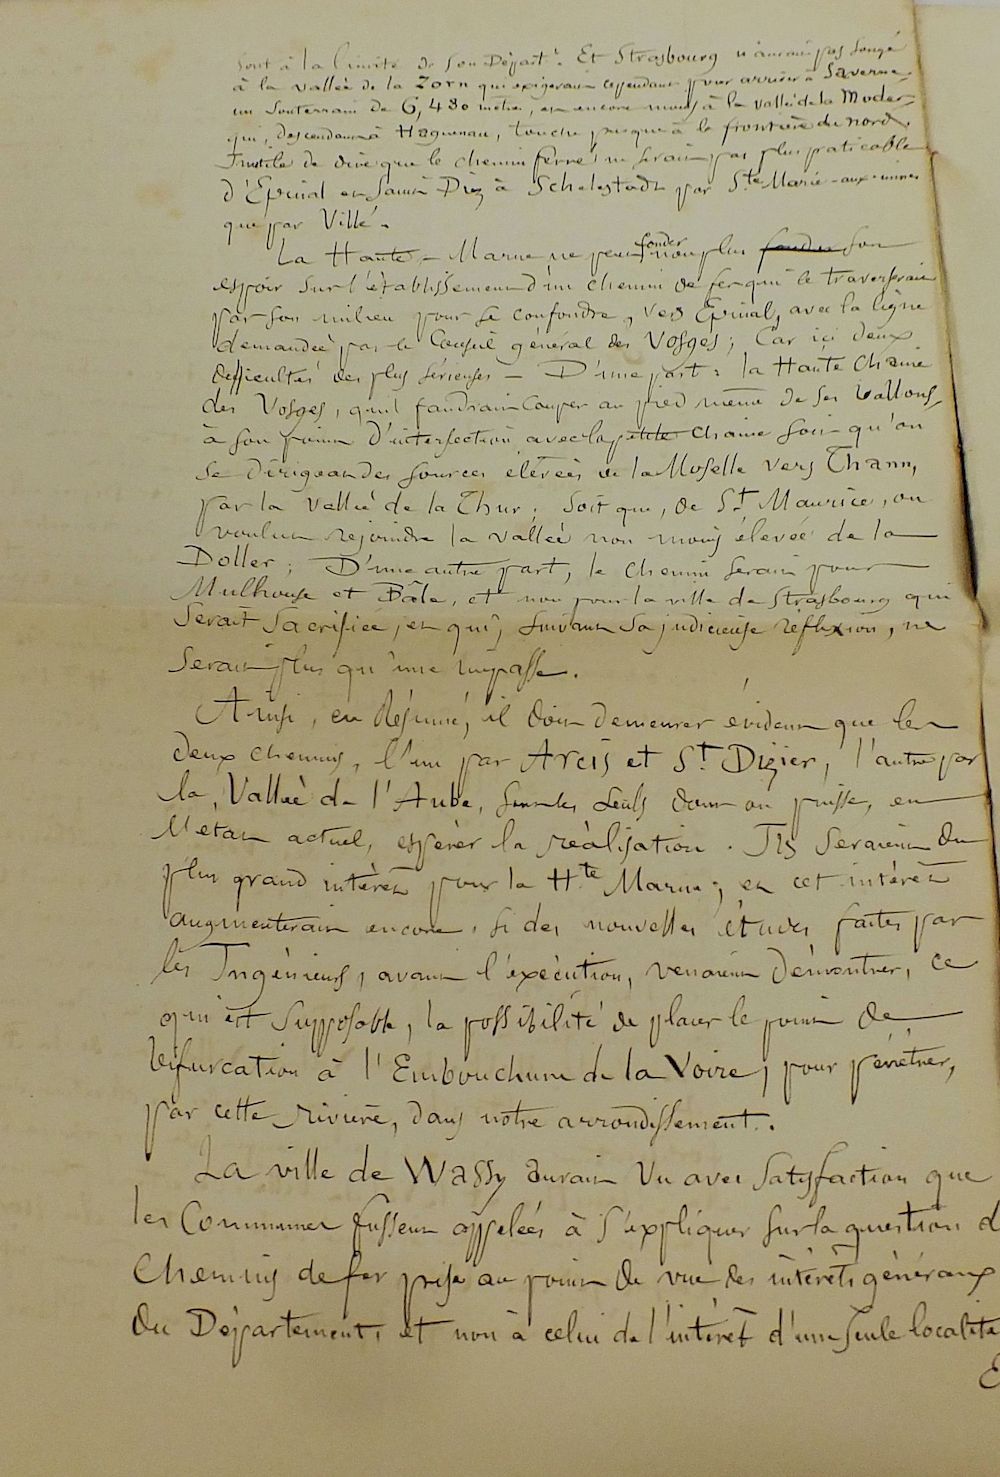 sont à la limite de son Départ.t Et Strasbourg n'aurait pas songé
à la vallée de la Zorn qui exigerait cependant pour arriver à Saverne,
un Souterrain de 6,480 mètres, et encore moins à la vallée de la Moder,
qui, descendant à Haguenau, touche presque à la frontière du nord.
Inutile de dire que le chemin ferré ne serait pas plus praticable
d'Epinal et Saint Diez à Schelestadt par S.te Marie-aux-mines
que par Villé.
La Haute-Marne ne peut fonder non plus fonder son
espoir sur l'établissement d'un chemin de fer qui le traverserait
par son milieu pour se confondre, vers Epinal, avec la ligne
demandée par le Conseil général des Vosges; Car ici deux
difficultés des plus sérieuses — D'une part: la Haute Chaine
des Vosges, qu'il faudrait couper au pied même de ses Ballons,
à son point d'intersection avec la petite chaine soit qu'on
se dirigeat des sources élevées de la Moselle vers Thann,
par la vallée de la Thur; soit que, de S.t Maurice, on
voulut rejoindre la vallée non moins élevée de la
Doller; D'une autre part, le chemin serait pour
Mulhouse et Bâle, et non pour la ville de Strasbourg qui
serait sacrifiée, et qui, suivant sa judicieuse réflexion, ne
serait plus qu'une impasse.
Ainsi, en Résumé, il doit demeurer évident que les
deux chemins, l'un par Arcis et S.t Dizier, l'autre par
la Vallée de l'Aube, sont les seuls dont on puisse, en
l'état actuel, espérer la réalisation. Ils seraient du
plus grand intérêt pour la H.te Marne; et cet intérêt
augmenterait encore, si des nouvelles études faites par
les Ingénieurs, avant l'exécution, venaient démontrer, ce
qui est supposable, la possibilité de placer le point de
bifurcation à l'Embouchure de la Voire, pour pénétrer,
par cette rivière, dans notre arrondissement.
La ville de Wassy aurait vu avec satisfaction que
les Communes fussent appelées à s'expliquer sur la question d
Chemins de fer prise au point de vue des intérêts généraux
du Département, et non à celui de l'intérêt d'une seule localité